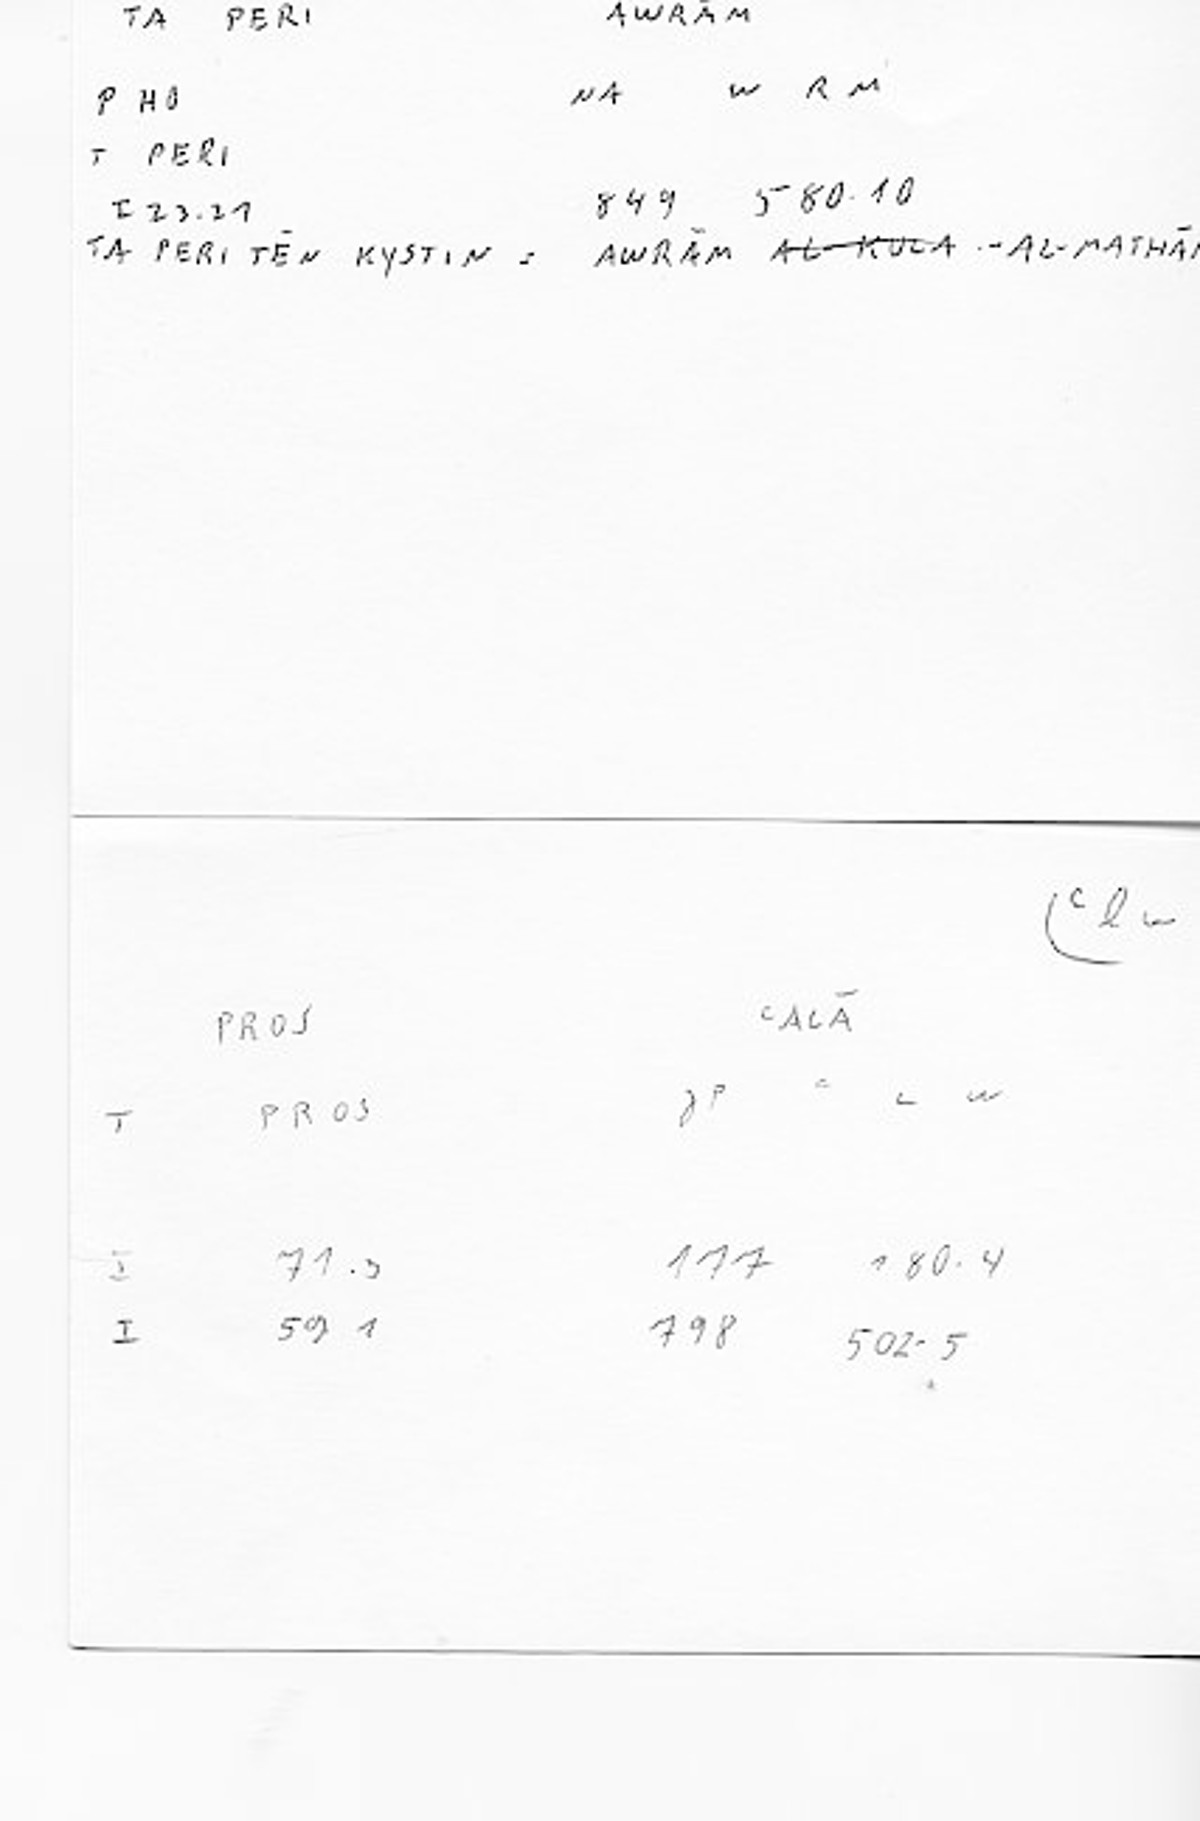 TA PERI AWRĀM
P HO NA W R M
T PERI
I 23.21 849 580.10
TA PERI TĒN KYSTIN : AWRĀM AL-KULA -AL-MATHĀN
ʿlw
PROS ʿALĀ
T PROS ʿ L W
I 71.3 177 180.4
I 59 1 798 502.5